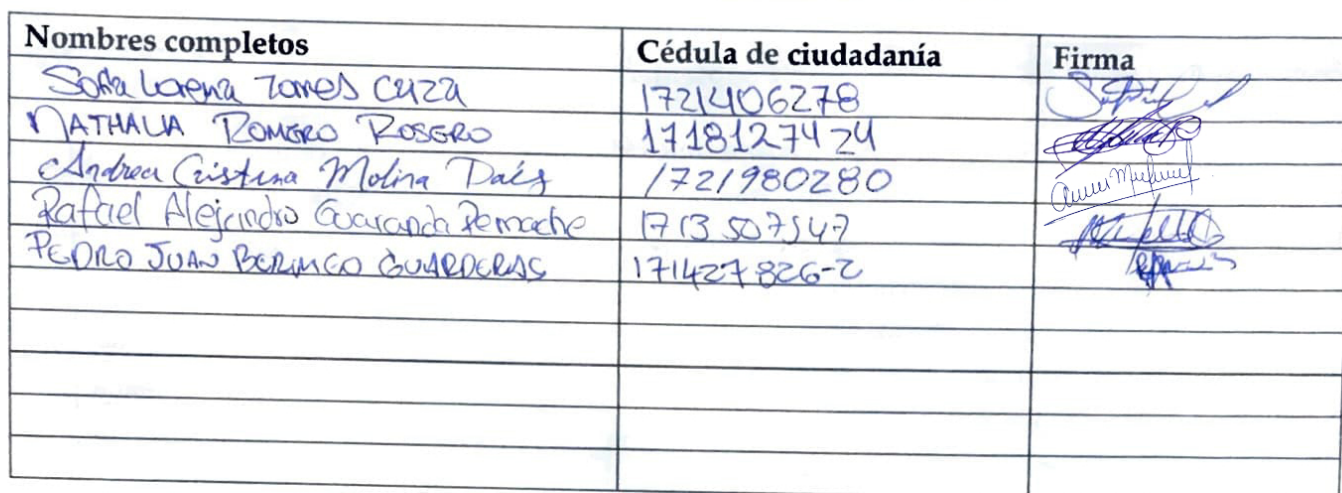 Nombres completos Cédula de ciudadanía Firma
Sofia Lorena Torres 1721406278
NATHALIA ROMERO ROSERO 1718127424
Andrea Cristina Molina 1721980280
Rafael Alejandro Guaranda Pemache 1713507547
PEDRO JUAN BERMEO GUARDERAS 171427826-2